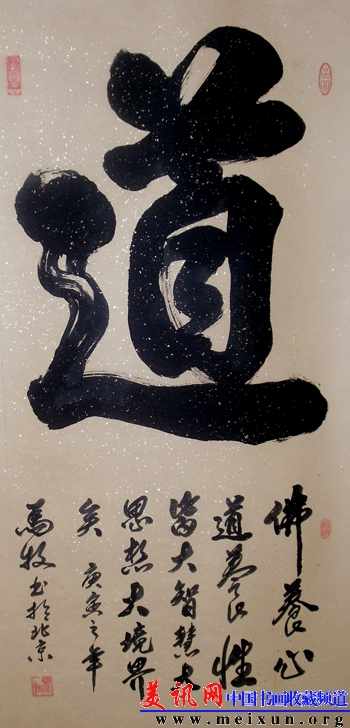 道
佛養心
道養性
皆大智慧大
思想大境界
矣 庚寅之年
馬牧书於北京
美讯网 中国书画收藏频道
www.meixun.org